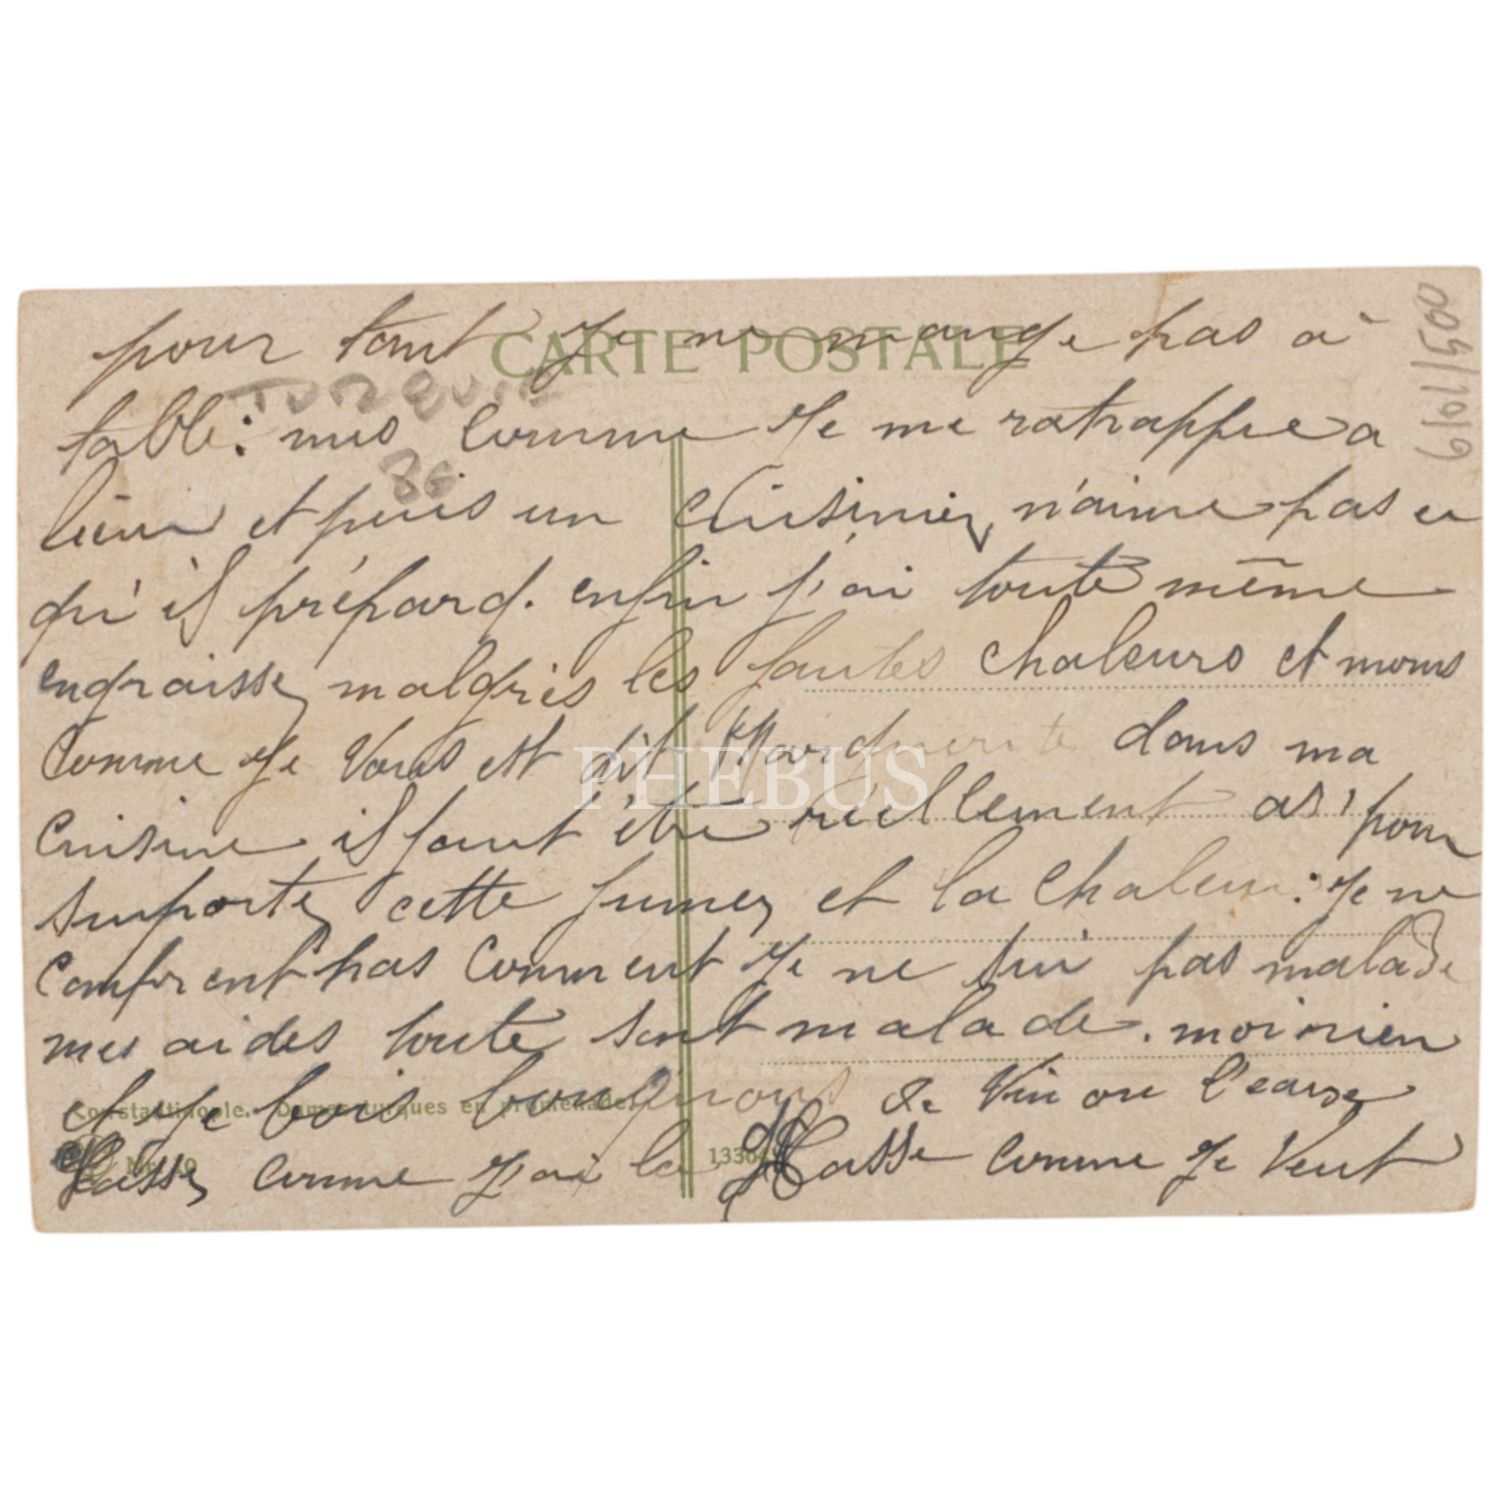 CARTE POSTALE
pour tant je ne mange pas à
TURQUIE
table: mes comme je me ratrappe a
86
et puis un cuisinier n'aime pas ce
qu'il prépard. enfin j'ai toute même
engraisse malgrès les fortes chaleurs et moins
comme je vous est dit Marguerite dans ma
cuisine il faut être réellement as, pour
suporte cette fumer et la chaleur: je ne
comprent pas comment je ne sui pas malade
mes aides toute sont malade. moi rien
et je bois de Vin ou l'eau
Constantinople. Dames turques en promenade.
comme j'ai la comme je veut
6101/500
PHEBUS